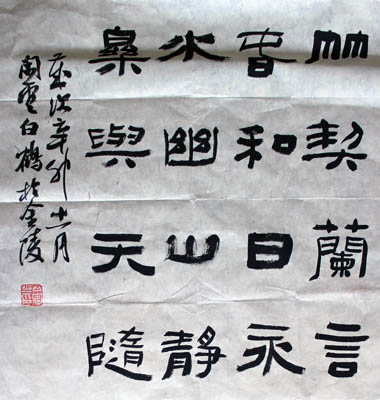 竹契蘭言
旾和日永
水幽山靜
與天隨
歲次辛卯月
閑雲白鶴於金陵